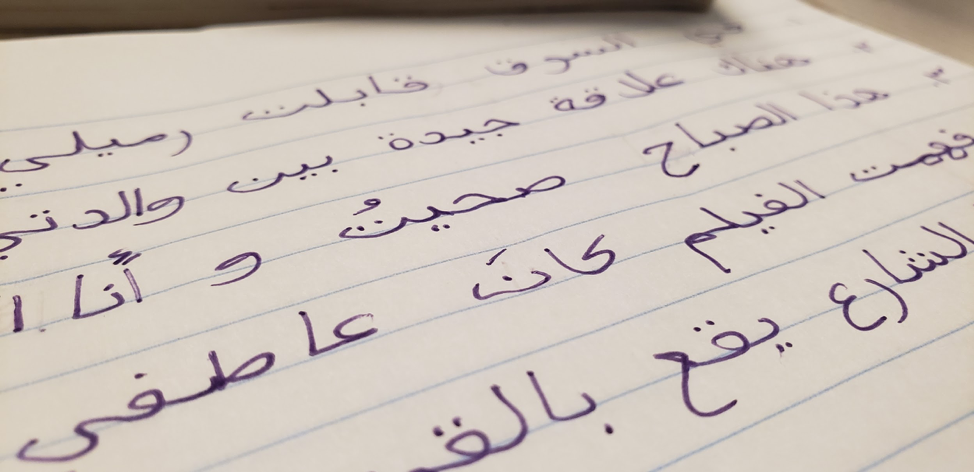 في السوق قابلت زميلي
٢. هناك علاقة جيدة بين والدتي
٣. هذا الصباح صحيتُ و أنا
فهمت الفيلم كانَ عاطفي
الشارع يقع